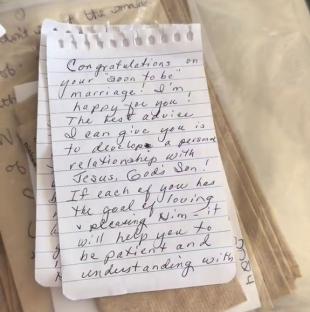 Congratulations on
your "soon to be"
marriage! I'm
happy for you!
The best advice
I can give you is
to develope a personal
relationship with
Jesus, Gods Son!
If each of you has
the goal of loving
& pleasing Him - it
will help you to
be patient and
understanding with